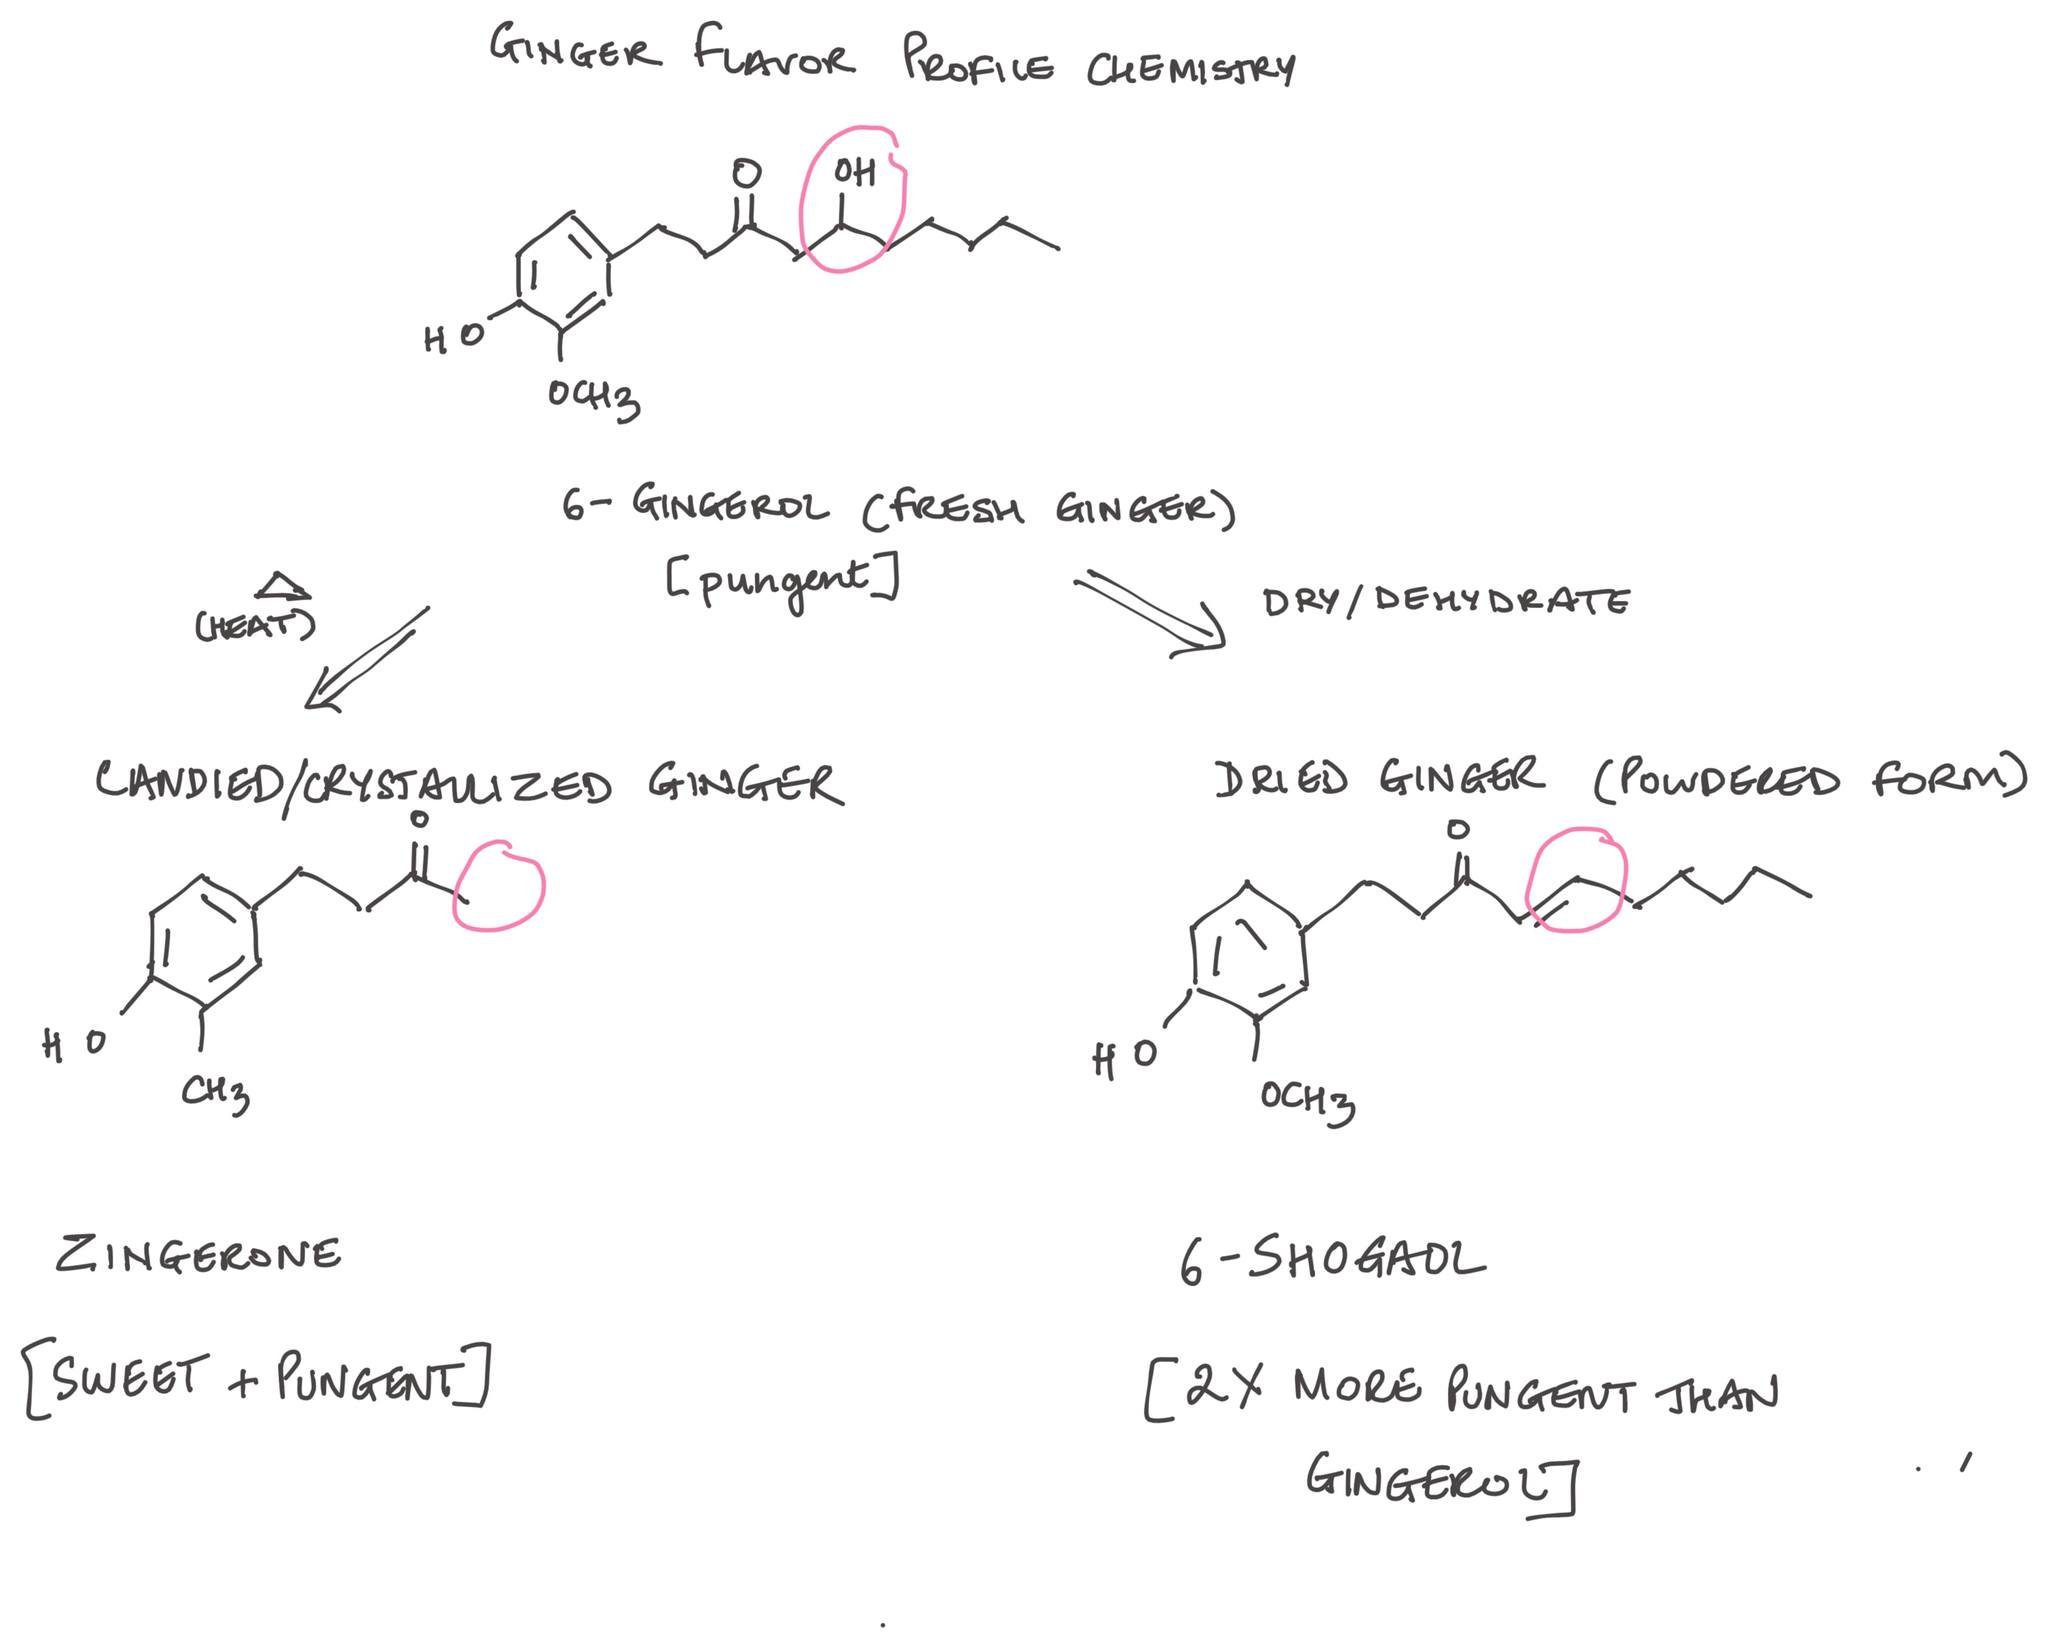 GINGER FLAVOR PROFILE CHEMISTRY
O
OH
HO
OCH3
6-GINGEROL (FRESH GINGER)
[pungent]
(HEAT)
DRY/DEHYDRATE
CANDIED/CRYSTALLIZED GINGER
DRIED GINGER (POWDERED FORM)
O
O
HO
CH3
HO
OCH3
ZINGERONE
6-SHOGAOL
[SWEET + PUNGENT]
[2X MORE PUNGENT THAN
GINGEROL]